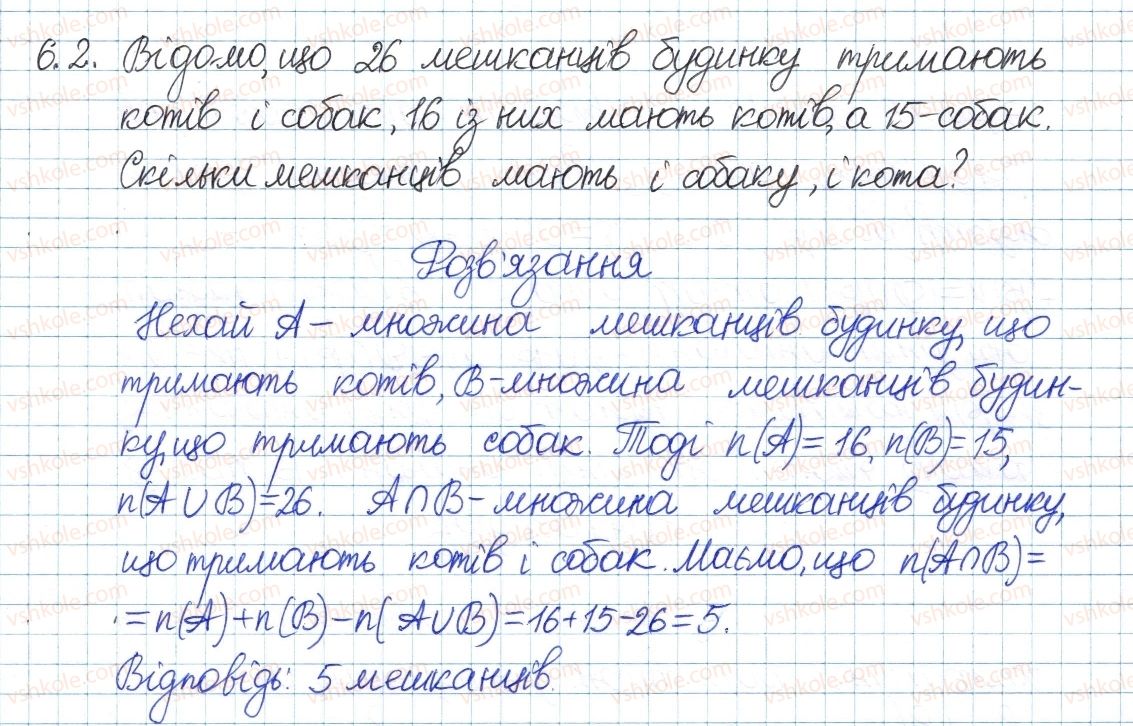 6.2. Відомо, що 26 мешканців будинку тримають
котів і собак, 16 із них мають котів, а 15-собак.
Скільки мешканців мають і собаку, і кота?
Розв'язання
Нехай A – множина мешканців будинку, що
тримають котів, B-множина мешканців будин-
ку, що тримають собак. Тоді n(A)=16, n(B)=15,
n(A∪B)=26. A∩B-множина мешканців будинку,
що тримають котів і собак. Маємо, що n(A∩B)=
=n(A)+n(B)-n(A∪B)=16+15-26=5.
Відповідь: 5 мешканців.